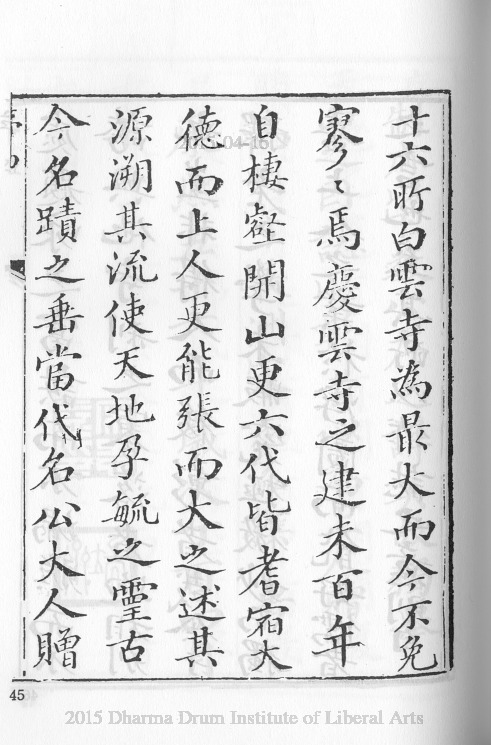 十六所白雲寺為最大而今不免
寥〻焉慶雲寺之建未百年
自棲壑開山更六代皆耆宿大
德而上人更能張而大之述其
源溯其流使天地孕毓之靈古
今名蹟之垂當代名公大人贈
45
2015 Dharma Drum Institute of Liberal Arts